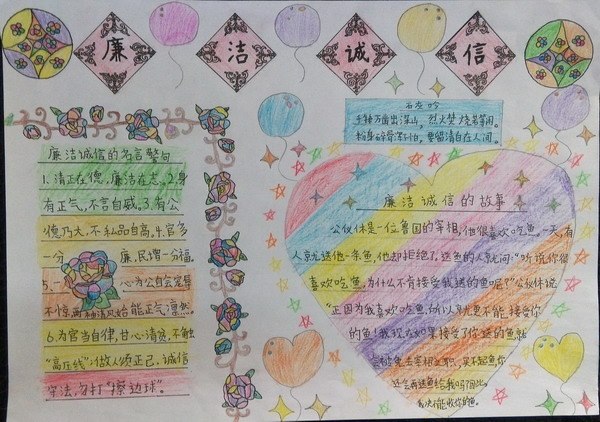 廉洁诚信
石灰吟
千锤万凿出深山，烈火焚烧若等闲。
粉身碎骨浑不怕，要留清白在人间。
廉洁诚信的名言警句
1.清正在德，廉洁在志。2.身
有正气，不言自威。3.有公
德乃大，不私品自高。4.官多
一分廉，民谓一分福。
5.心为公自会宠辱
不惊，两袖清风始能正气凛然。
6.为官当自律，甘心清贫，不触
"高压线"；做人须正己，诚信
守法，勿打"擦边球"。
廉洁诚信的故事
公仪休是一位鲁国的宰相，他很喜欢吃鱼。一天，有
人就送他一条鱼，他却拒绝了，送鱼的人就问："听说你很
喜欢吃鱼，为什么不肯接受我送的鱼呢？"公仪休说
"正因为我喜欢吃鱼，所以就更不能接受你
的鱼！我现在如果接受了你送的鱼就
会被免去宰相之职，买不起鱼你
还会再送鱼给我吗？因此，
我决不能收你的鱼。